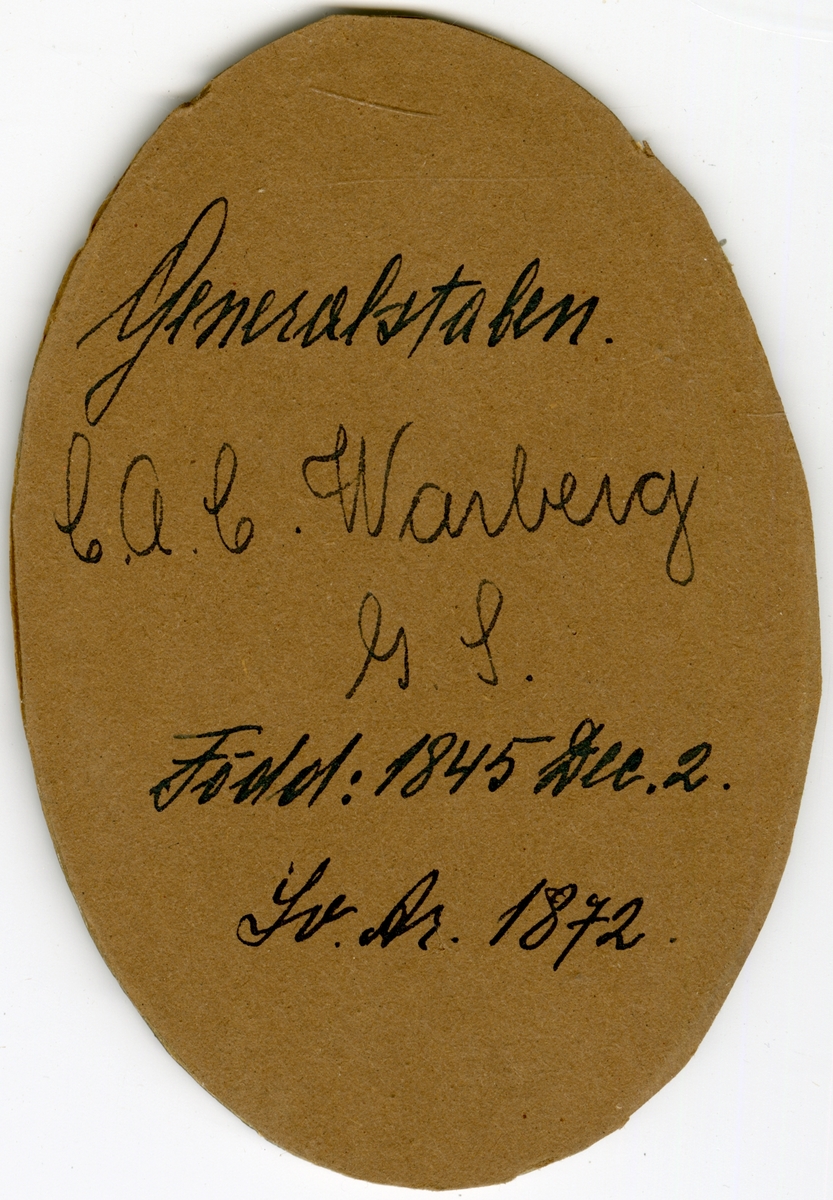 Generalstaben.
C.A.C. Warberg
G. S.
Född: 1845 Dec. 2.
Sv. Ar. 1872.